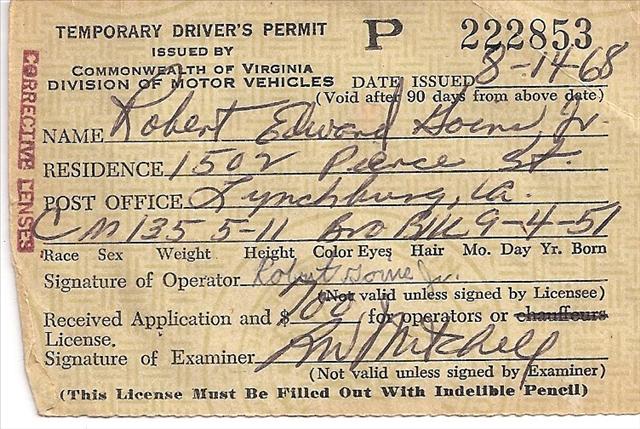 TEMPORARY DRIVER'S PERMIT P 222853
ISSUED BY
COMMONWEALTH OF VIRGINIA
DIVISION OF MOTOR VEHICLES DATE ISSUED 8-14-68
(Void after 90 days from above date)
CORRECTIVE LENSES
NAME Robert Edward Goens, Jr.
RESIDENCE 1502 Pierce St.
POST OFFICE Lynchburg, Va.
C M 135 5-11 Bro Blk 9-4-51
Race Sex Weight Height Color Eyes Hair Mo. Day Yr. Born
Signature of Operator Robert Jr.
(Not valid unless signed by Licensee)
Received Application and $ 700 for operators or chauffeurs
License.
Signature of Examiner RW Mitchell
(Not valid unless signed by Examiner)
(This License Must Be Filled Out With Indelible Pencil)